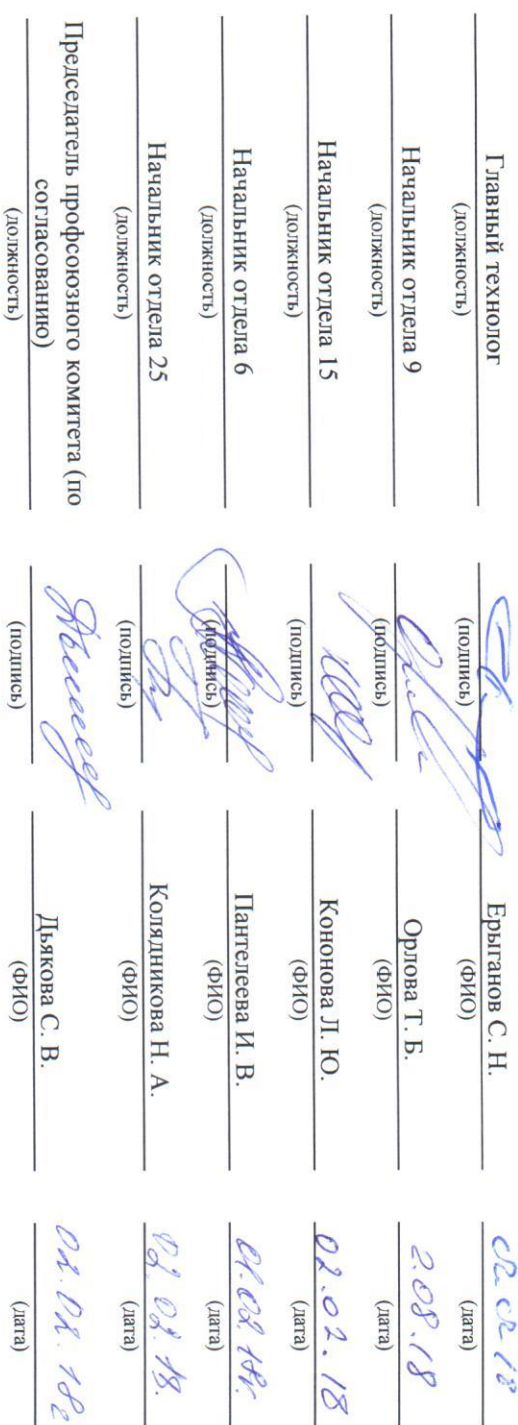 Главный технолог Ерыганов С. Н. 02.02.18
(должность) (подпись) (ФИО) (дата)
Начальник отдела 9 Орлова Т. Б. 2.08.18
(должность) (подпись) (ФИО) (дата)
Начальник отдела 15 Кононова Л. Ю. 02.02.18
(должность) (подпись) (ФИО) (дата)
Начальник отдела 6 Пантелеева И. В. 01.02.18г.
(должность) (подпись) (ФИО) (дата)
Начальник отдела 25 Колядникова Н. А. 02.02.18.
(должность) (подпись) (ФИО) (дата)
Председатель профсоюзного комитета (по
согласованию) Дьякова С. В. 02.02.18г
(должность) (подпись) (ФИО) (дата)